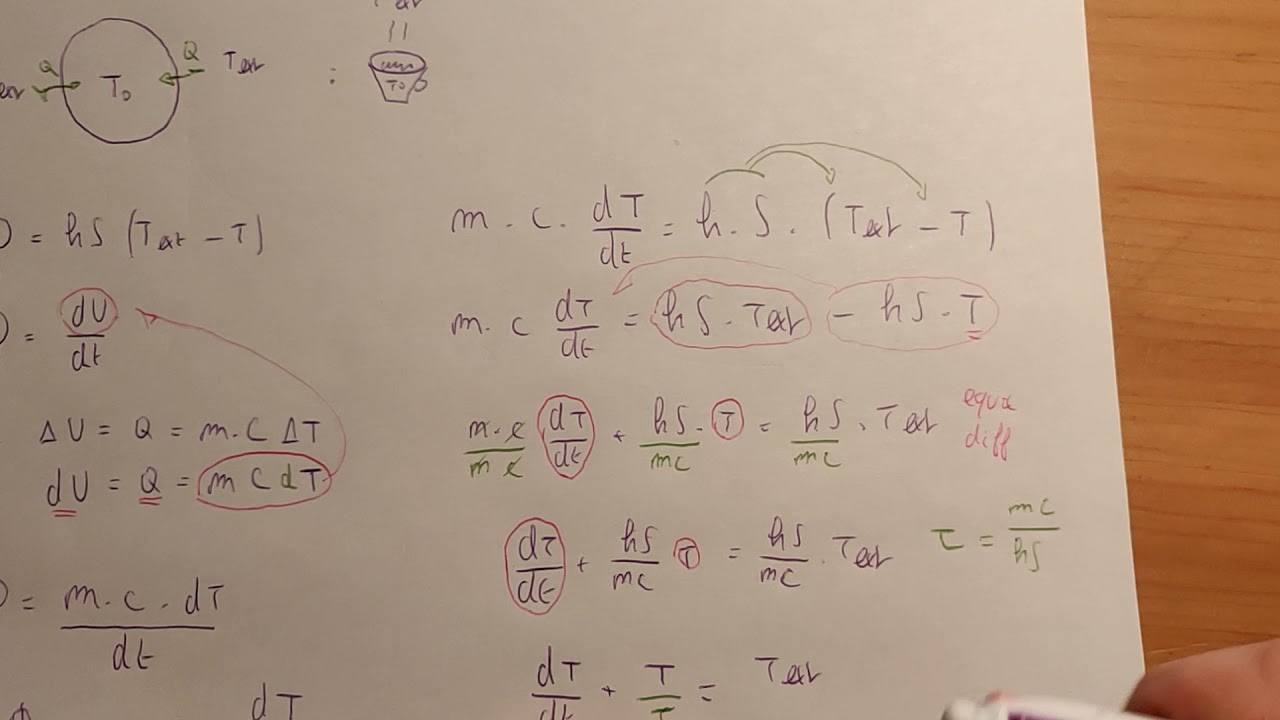 Q Q T ext
T₀ : T₀
= h S (T ext - T)
= dU/dt
ΔU = Q = m.C ΔT
dU = Q = m C dT
= m.c.dT/dt
dT
m.c.dT/dt = h.S.(T ext - T)
m.c dT/dt = hS.T ext - hS.T
m.c/m c dT/dt + hS/mc.T = hS/mc.T ext equa
diff
dT/dt + hS/mc T = hS/mc.T ext τ = mc/hS
dT/dt + T/τ = T ext